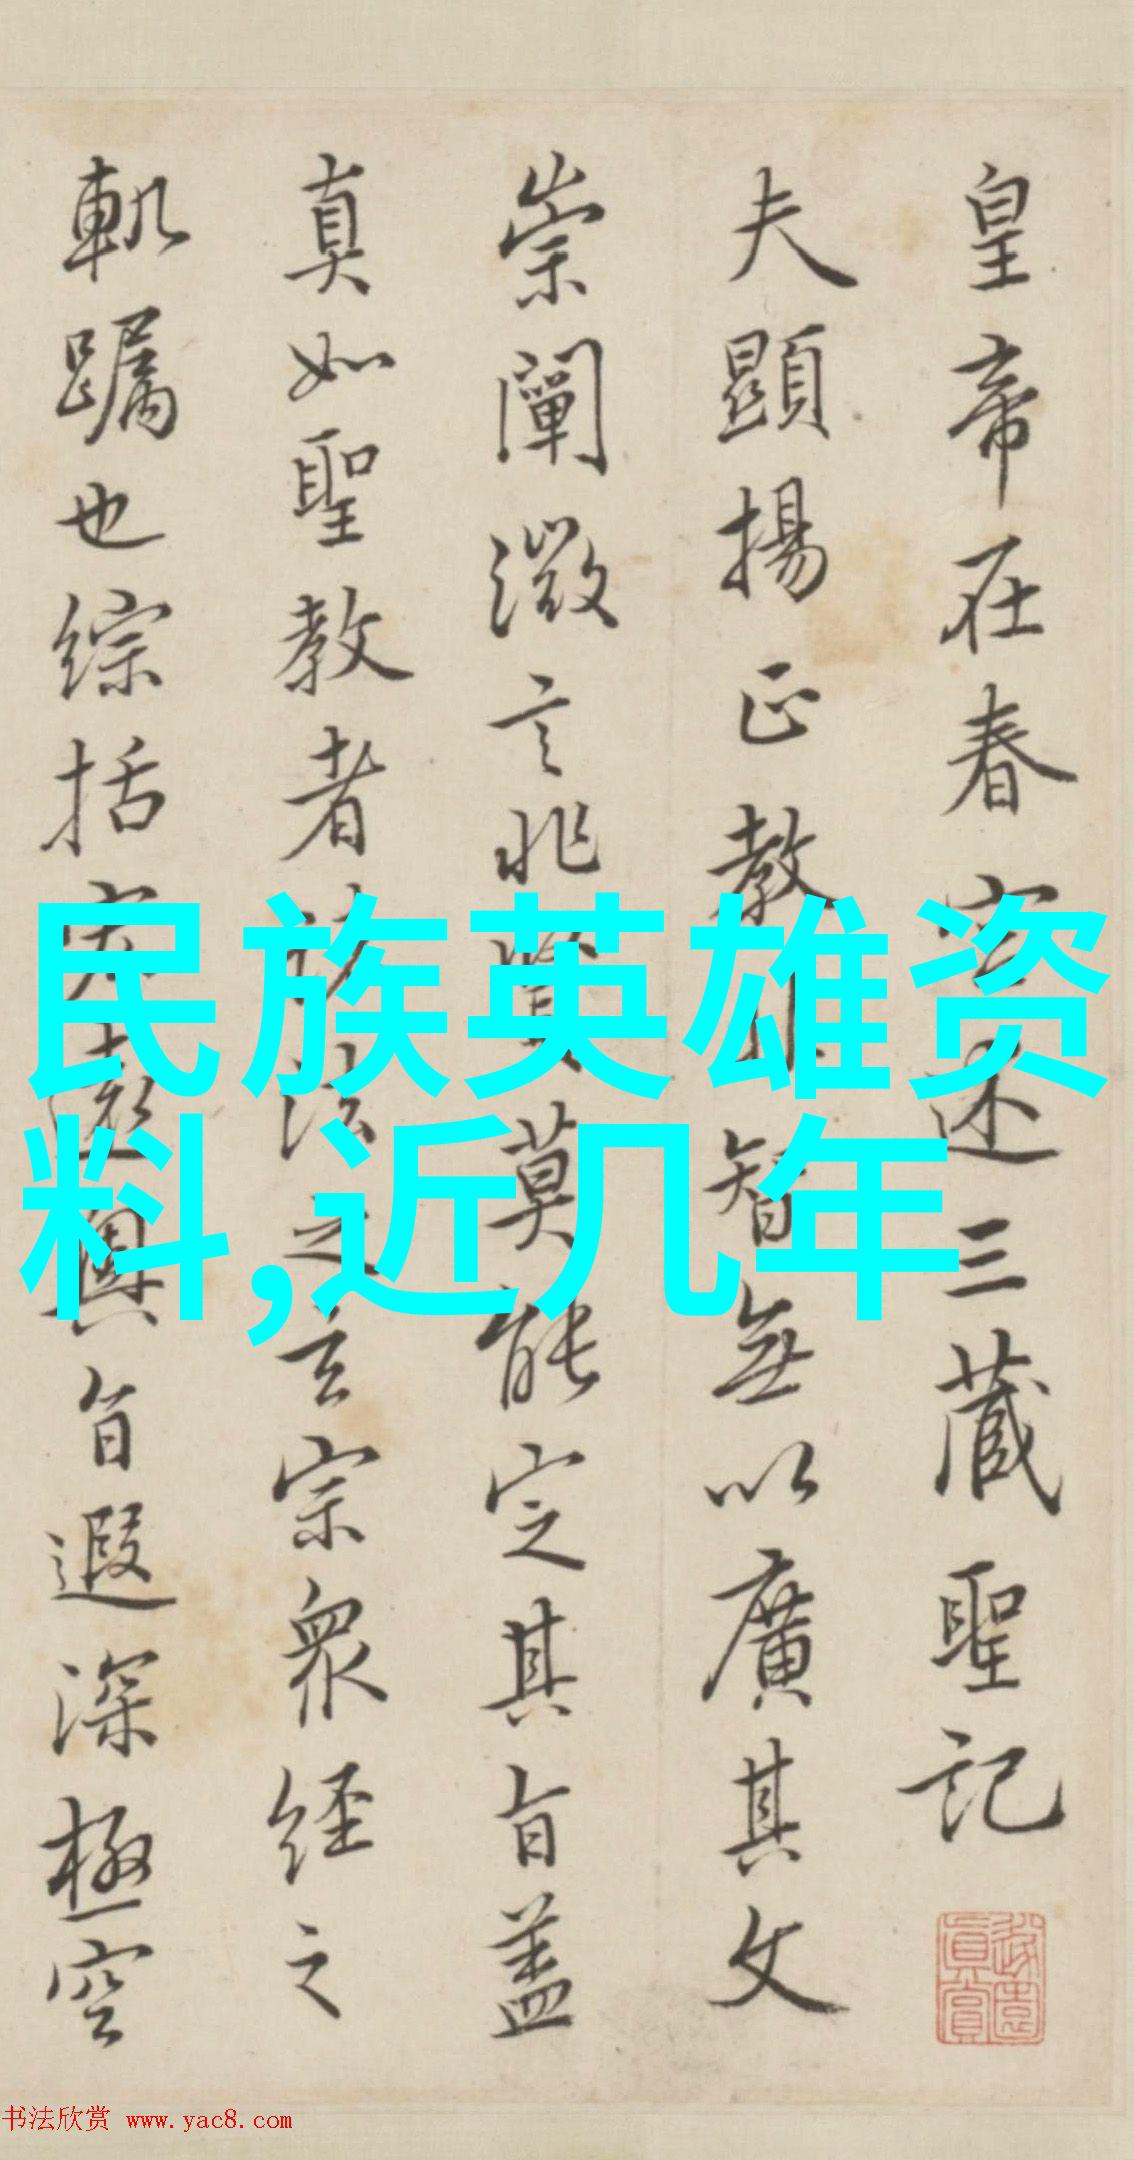 皇帝在春宮述三藏聖記
夫顯揚正教非智無以廣其文
崇闡微言非賢莫能定其旨蓋
真如聖教者諸法之玄宗眾經之
軌躅也綜括宏遠奧旨遐深極空
民族英雄资
料,近几年
书法欣赏 www.yac8.com